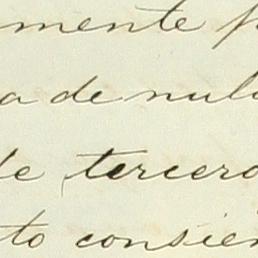 mente p
a de nul
le tercero
to consien